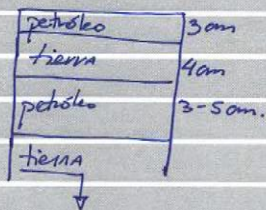 petróleo 3cm
tierra 4cm
petróleo 3-5cm.
tierra